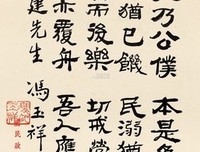 乃公僕本是魚
猶已饑民溺猶
而後樂切戒營
亦覆舟吾人應
建先生馮玉祥